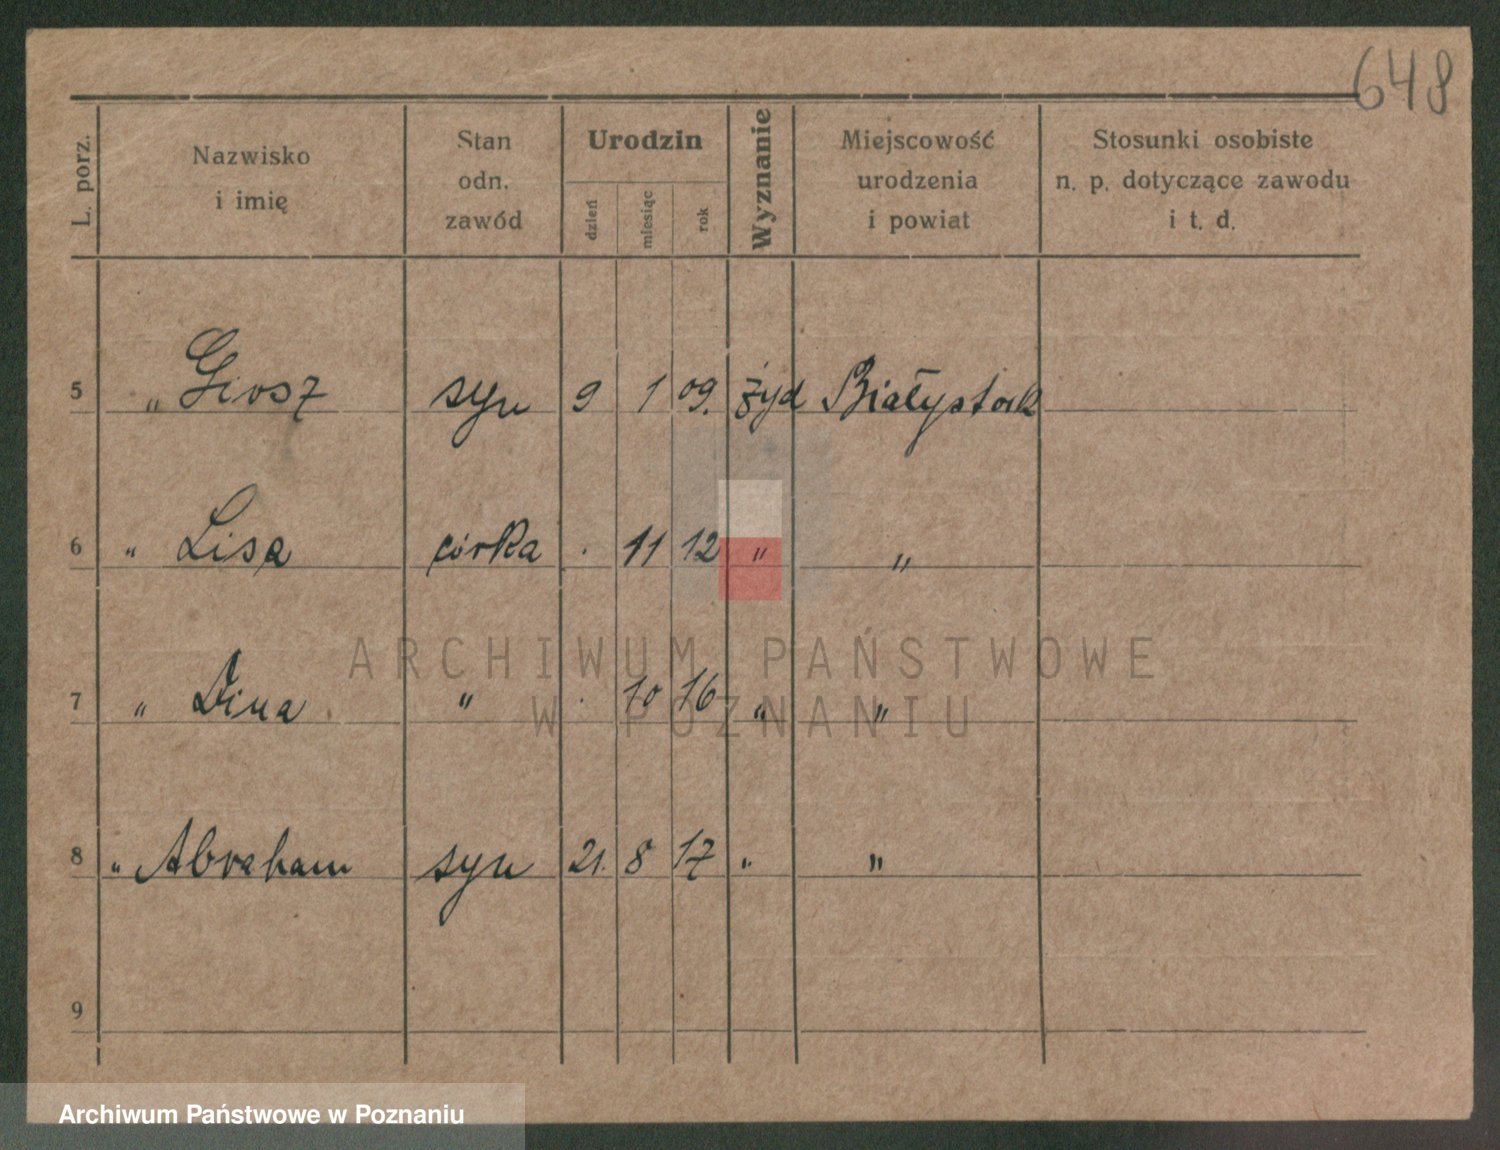 648
L. porz. Nazwisko i imię Stan odn. zawód Urodzin dzień miesiąc rok Wyznanie Miejscowość urodzenia i powiat Stosunki osobiste n. p. dotyczące zawodu i t. d.
5 „ Giosz syn 9 1 09. żyd Białystok
6 „ Lisa córka . 11 12 „ „
7 „ Dina „ . 10 16 „ „
8 „ Abraham syn 21. 8 17 „ „
9
ARCHIWUM PAŃSTWOWE
W POZNANIU
Archiwum Państwowe w Poznaniu